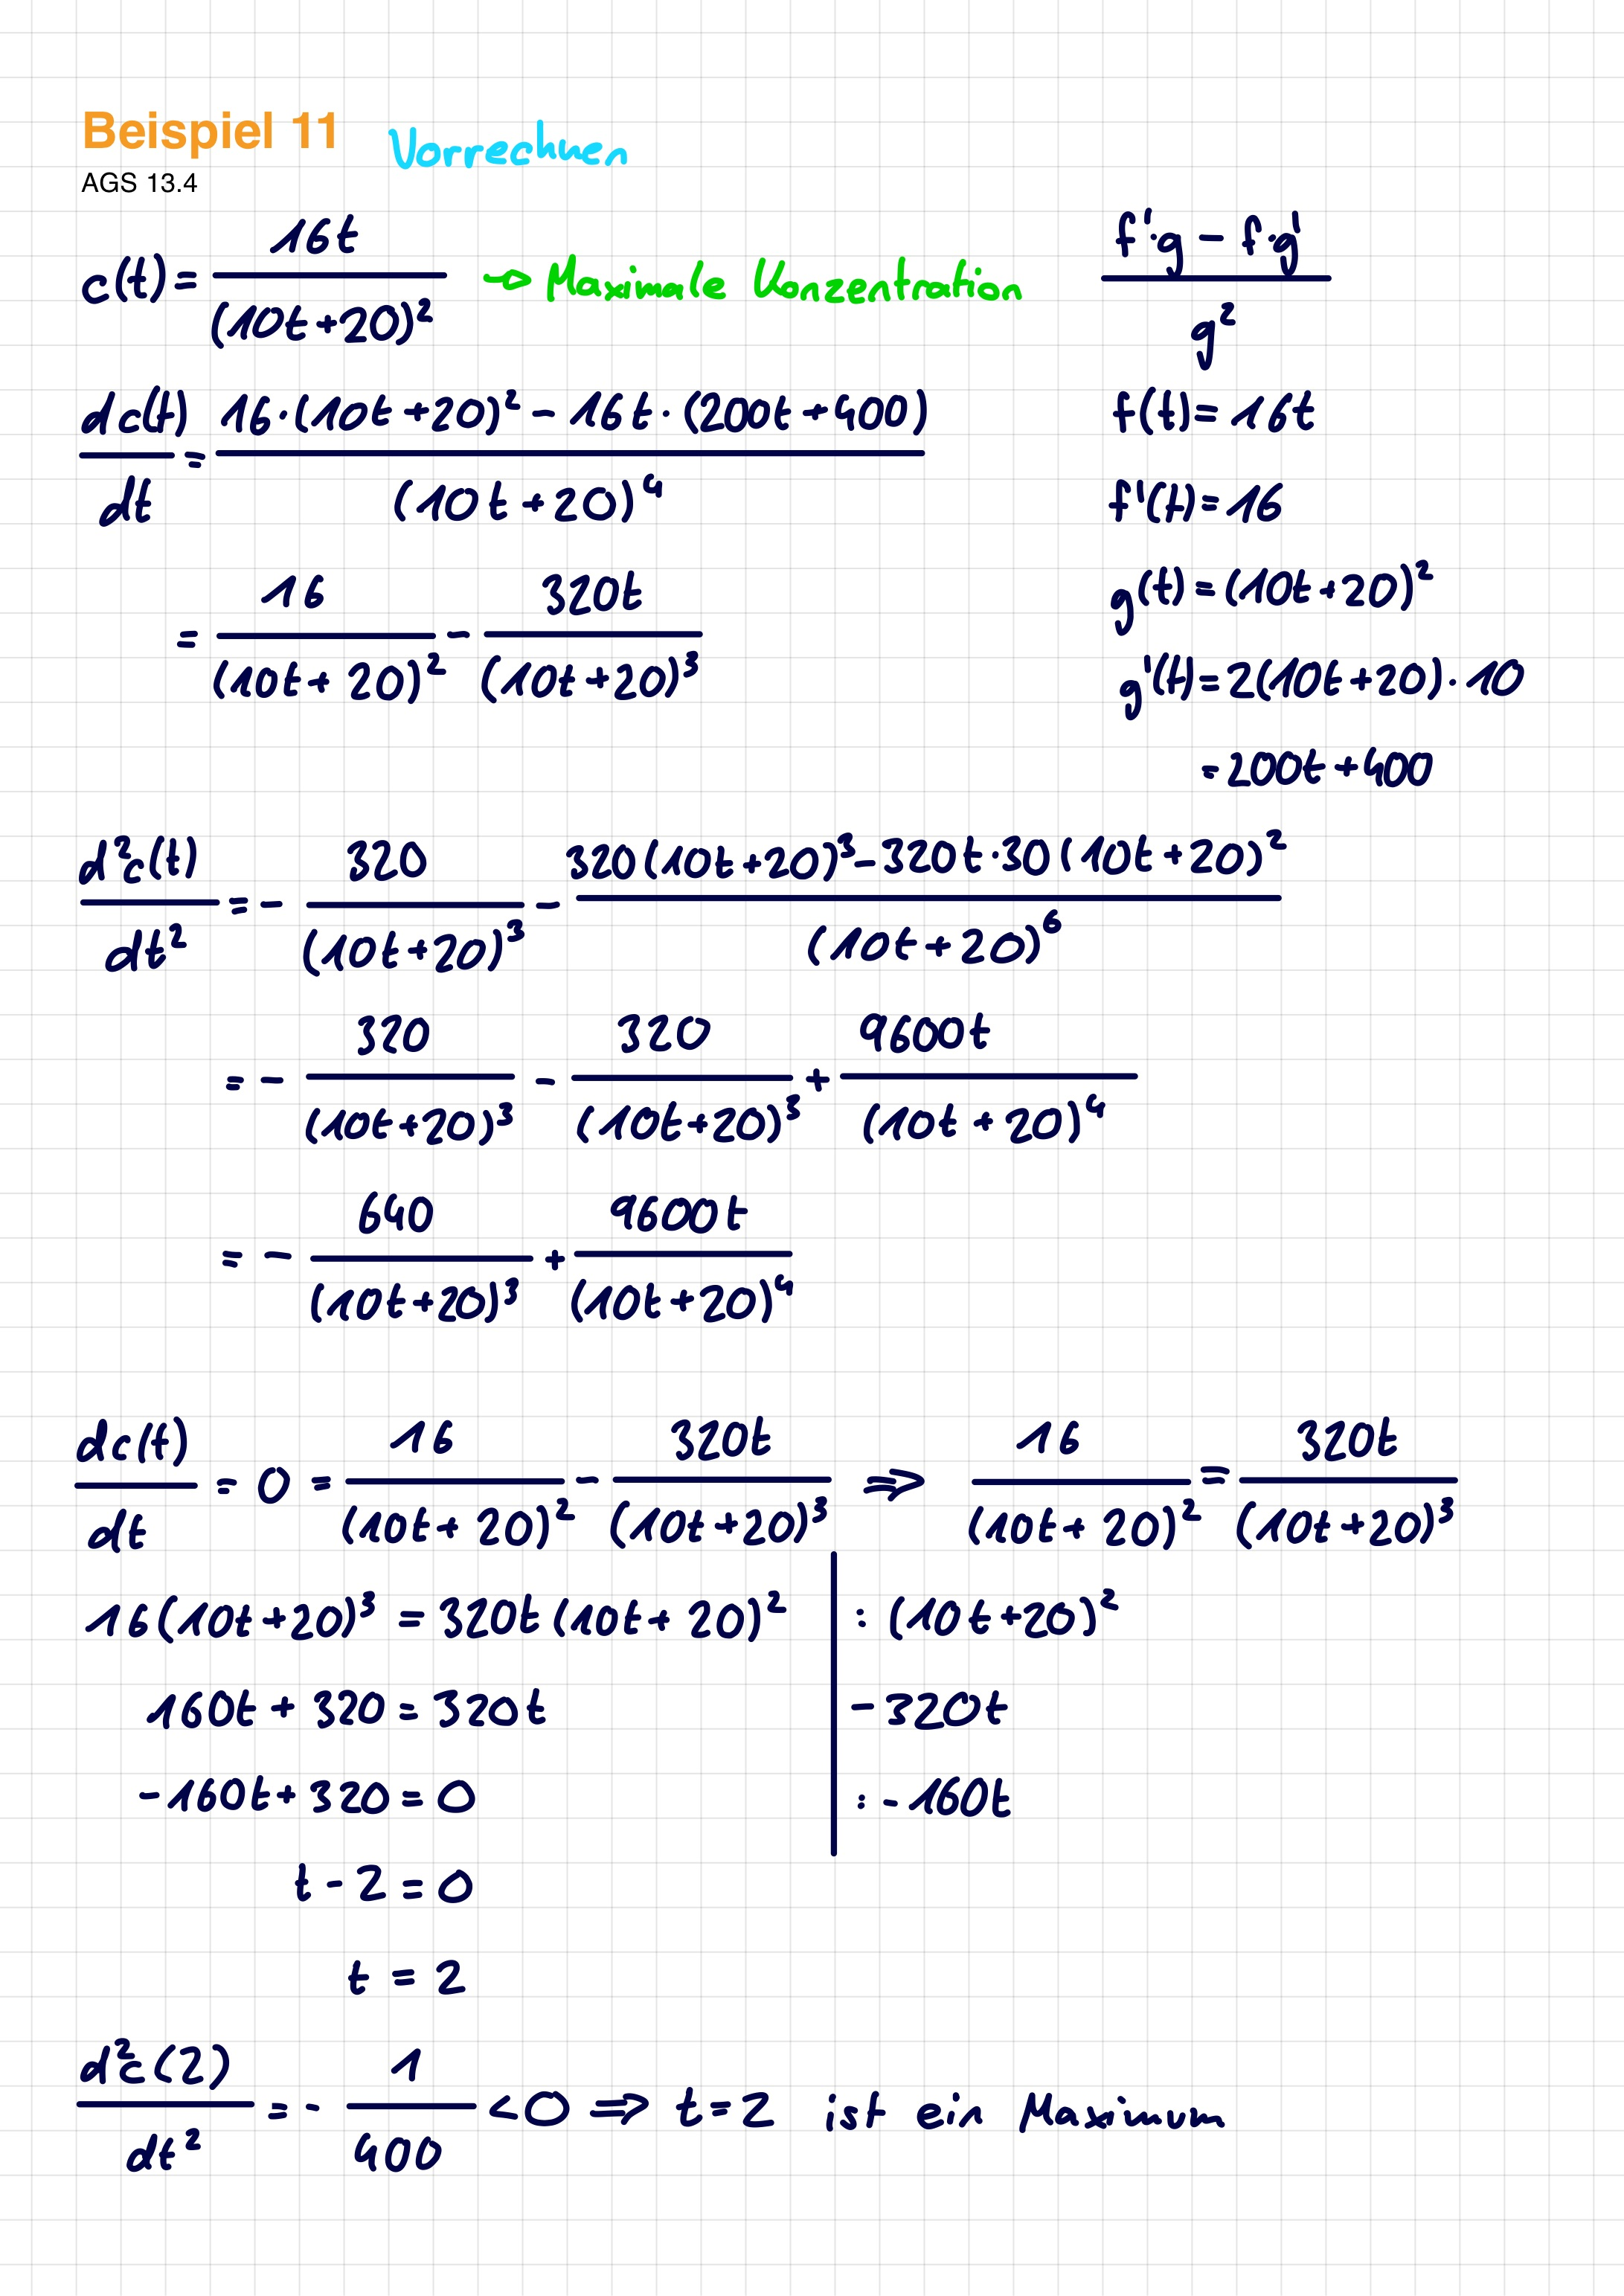 Beispiel 11 Vorrechnen
AGS 13.4
c(t) = 16t / (10t+20)² → Maximale Konzentration
f'·g − f·g' / g²
dc(t)/dt = 16·(10t+20)² − 16t·(200t+400) / (10t+20)⁴
f(t) = 16t
f'(t) = 16
= 16/(10t+20)² − 320t/(10t+20)³
g(t) = (10t+20)²
g'(t) = 2(10t+20)·10
= 200t+400
d²c(t)/dt² = − 320/(10t+20)³ − 320(10t+20)³−320t·30(10t+20)² / (10t+20)⁶
= − 320/(10t+20)³ − 320/(10t+20)³ + 9600t/(10t+20)⁴
= − 640/(10t+20)³ + 9600t/(10t+20)⁴
dc(t)/dt = 0 = 16/(10t+20)² − 320t/(10t+20)³ ⇒ 16/(10t+20)² = 320t/(10t+20)³
16(10t+20)³ = 320t(10t+20)² | : (10t+20)²
160t+320 = 320t | −320t
−160t+320 = 0 | : −160t
t − 2 = 0
t = 2
d²c(2)/dt² = − 1/400 < 0 ⇒ t=2 ist ein Maximum